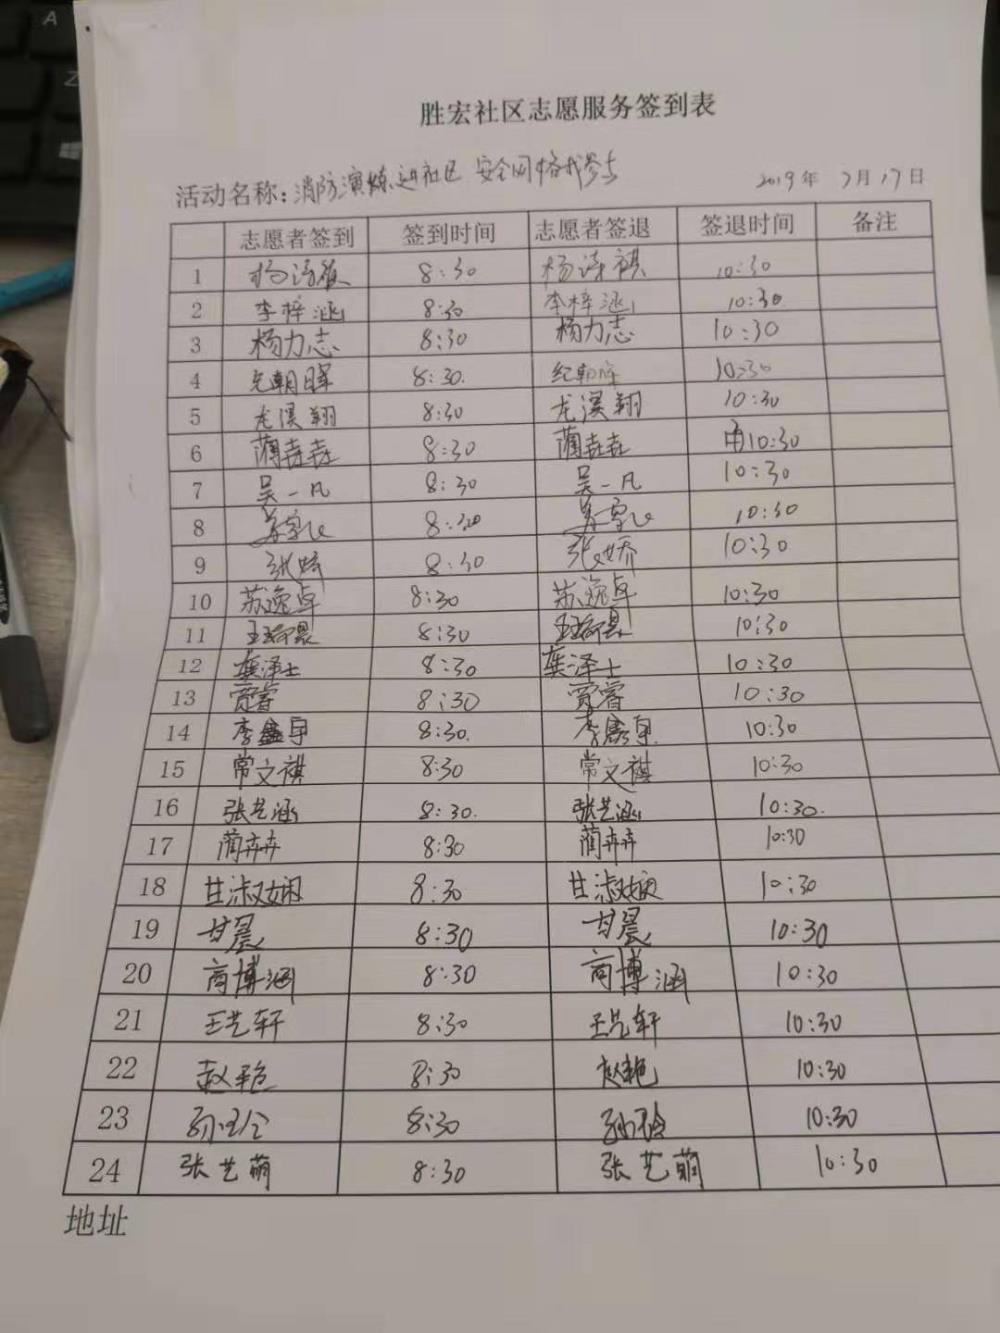 胜宏社区志愿服务签到表
活动名称: 消防演练进社区 安全网格我参与 2019年 7月17日
志愿者签到 签到时间 志愿者签退 签退时间 备注
1 8:30 杨涛祺 10:30
2 李梓涵 8:30 李梓涵 10:30
3 杨力志 8:30 杨力志 10:30
4 8:30. 纪朝晖 10:30
5 龙淏翔 8:30 龙淏翔 10:30
6 蔺垚垚 8:30 蔺垚垚 10:30
7 吴一凡 8:30 吴一凡 10:30
8 8:30 10:30
9 8:30 张娇 10:30
10 苏逸卓 8:30 苏逸卓 10:30
11 8:30 10:30
12 龚泽士 8:30 龚泽士 10:30
13 贾睿 8:30 贾睿 10:30
14 李鑫宇 8:30. 李鑫宇 10:30
15 常文祺 8:30 常文祺 10:30
16 张艺涵 8:30. 张艺涵 10:30.
17 蔺卉卉 8:30 蔺卉卉 10:30
18 甘淑娴 8:30 甘淑娴 10:30
19 甘晨 8:30 甘晨 10:30
20 商博涵 8:30 商博涵 10:30
21 王艺轩 8:30 王艺轩 10:30
22 赵艳 8:30 赵艳 10:30
23 8:30 10:30
24 张艺萌 8:30 张艺萌 10:30
地址